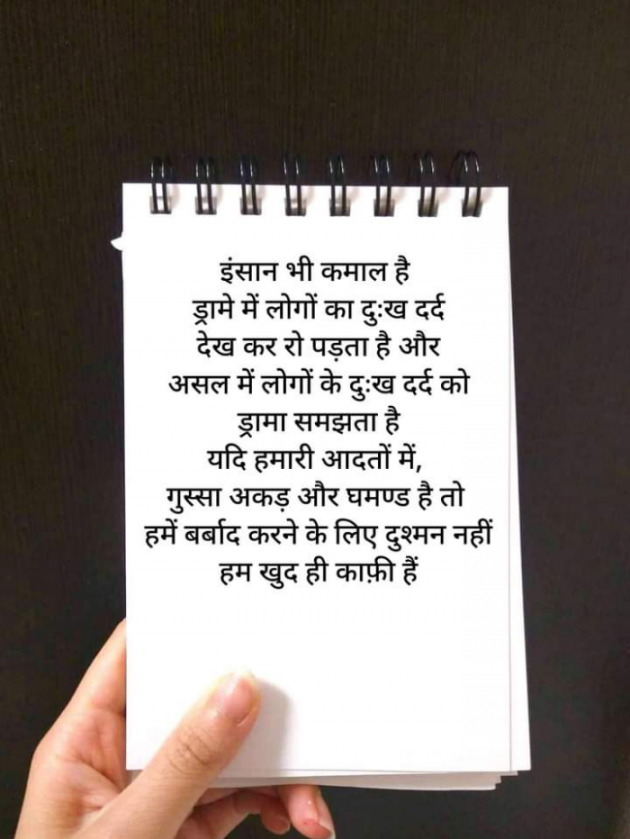 इंसान भी कमाल है
ड्रामे में लोगों का दुःख दर्द
देख कर रो पड़ता है और
असल में लोगों के दुःख दर्द को
ड्रामा समझता है
यदि हमारी आदतों में,
गुस्सा अकड़ और घमण्ड है तो
हमें बर्बाद करने के लिए दुश्मन नहीं
हम खुद ही काफ़ी हैं